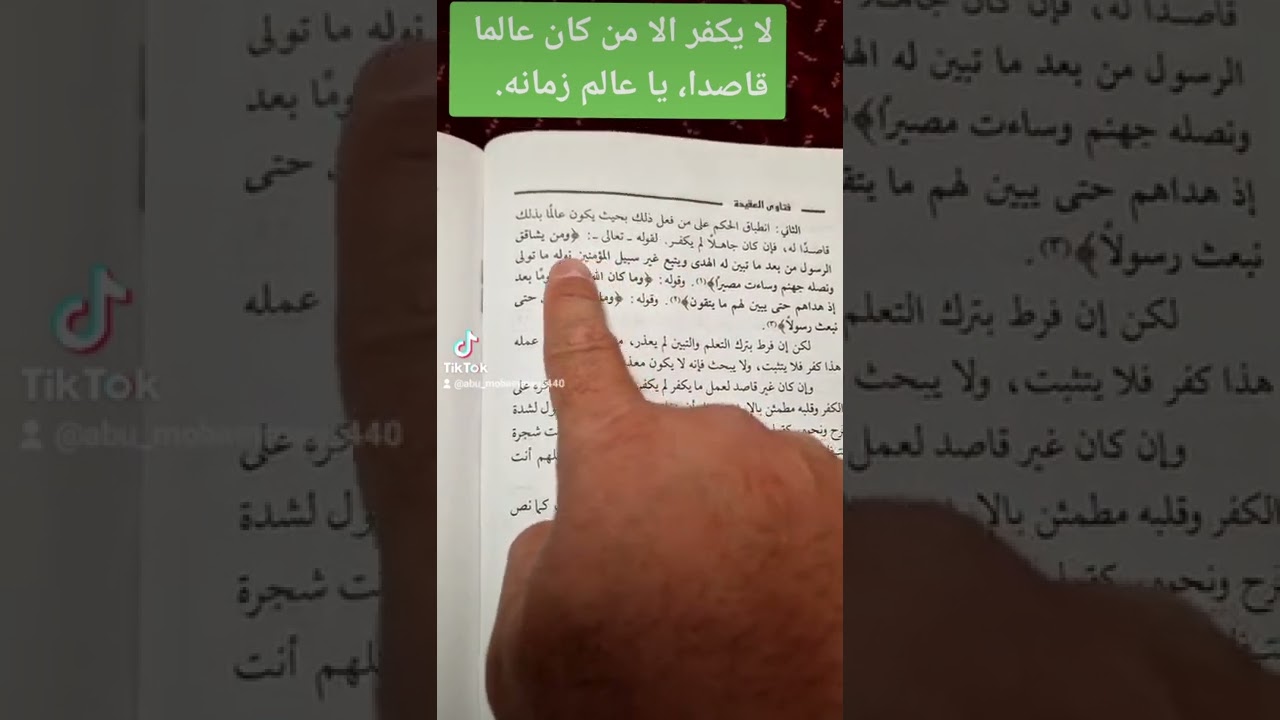 لا يكفر الا من كان عالما
قاصدا، يا عالم زمانه.
فتاوى العقيدة
الثاني: انطباق الحكم على من فعل ذلك بحيث يكون عالمًا بذلك
قاصدًا له، فإن كان جاهلًا لم يكفر. لقوله ـ تعالى ـ: ﴿ومن يشاقق
الرسول من بعد ما تبين له الهدى ويتبع غير سبيل المؤمنين نوله ما تولى
ونصله جهنم وساءت مصيراً﴾(١). وقوله: ﴿وما كان الله ومًا بعد
إذ هداهم حتى يبين لهم ما يتقون﴾(٢). وقوله: ﴿وما حتى
نبعث رسولاً﴾(٣).
لكن إن فرط بترك التعلم والتبين لم يعذر، عمله
هذا كفر فلا يتثبت، ولا يبحث فإنه لا يكون معذ
وإن كان غير قاصد لعمل ما يكفر لم يكفر كره على
الكفر وقلبه مطمئن بالا زل لشدة
رح ونحوه شجرة
لهم أنت
كما نص
TikTok
@abu_moha 440